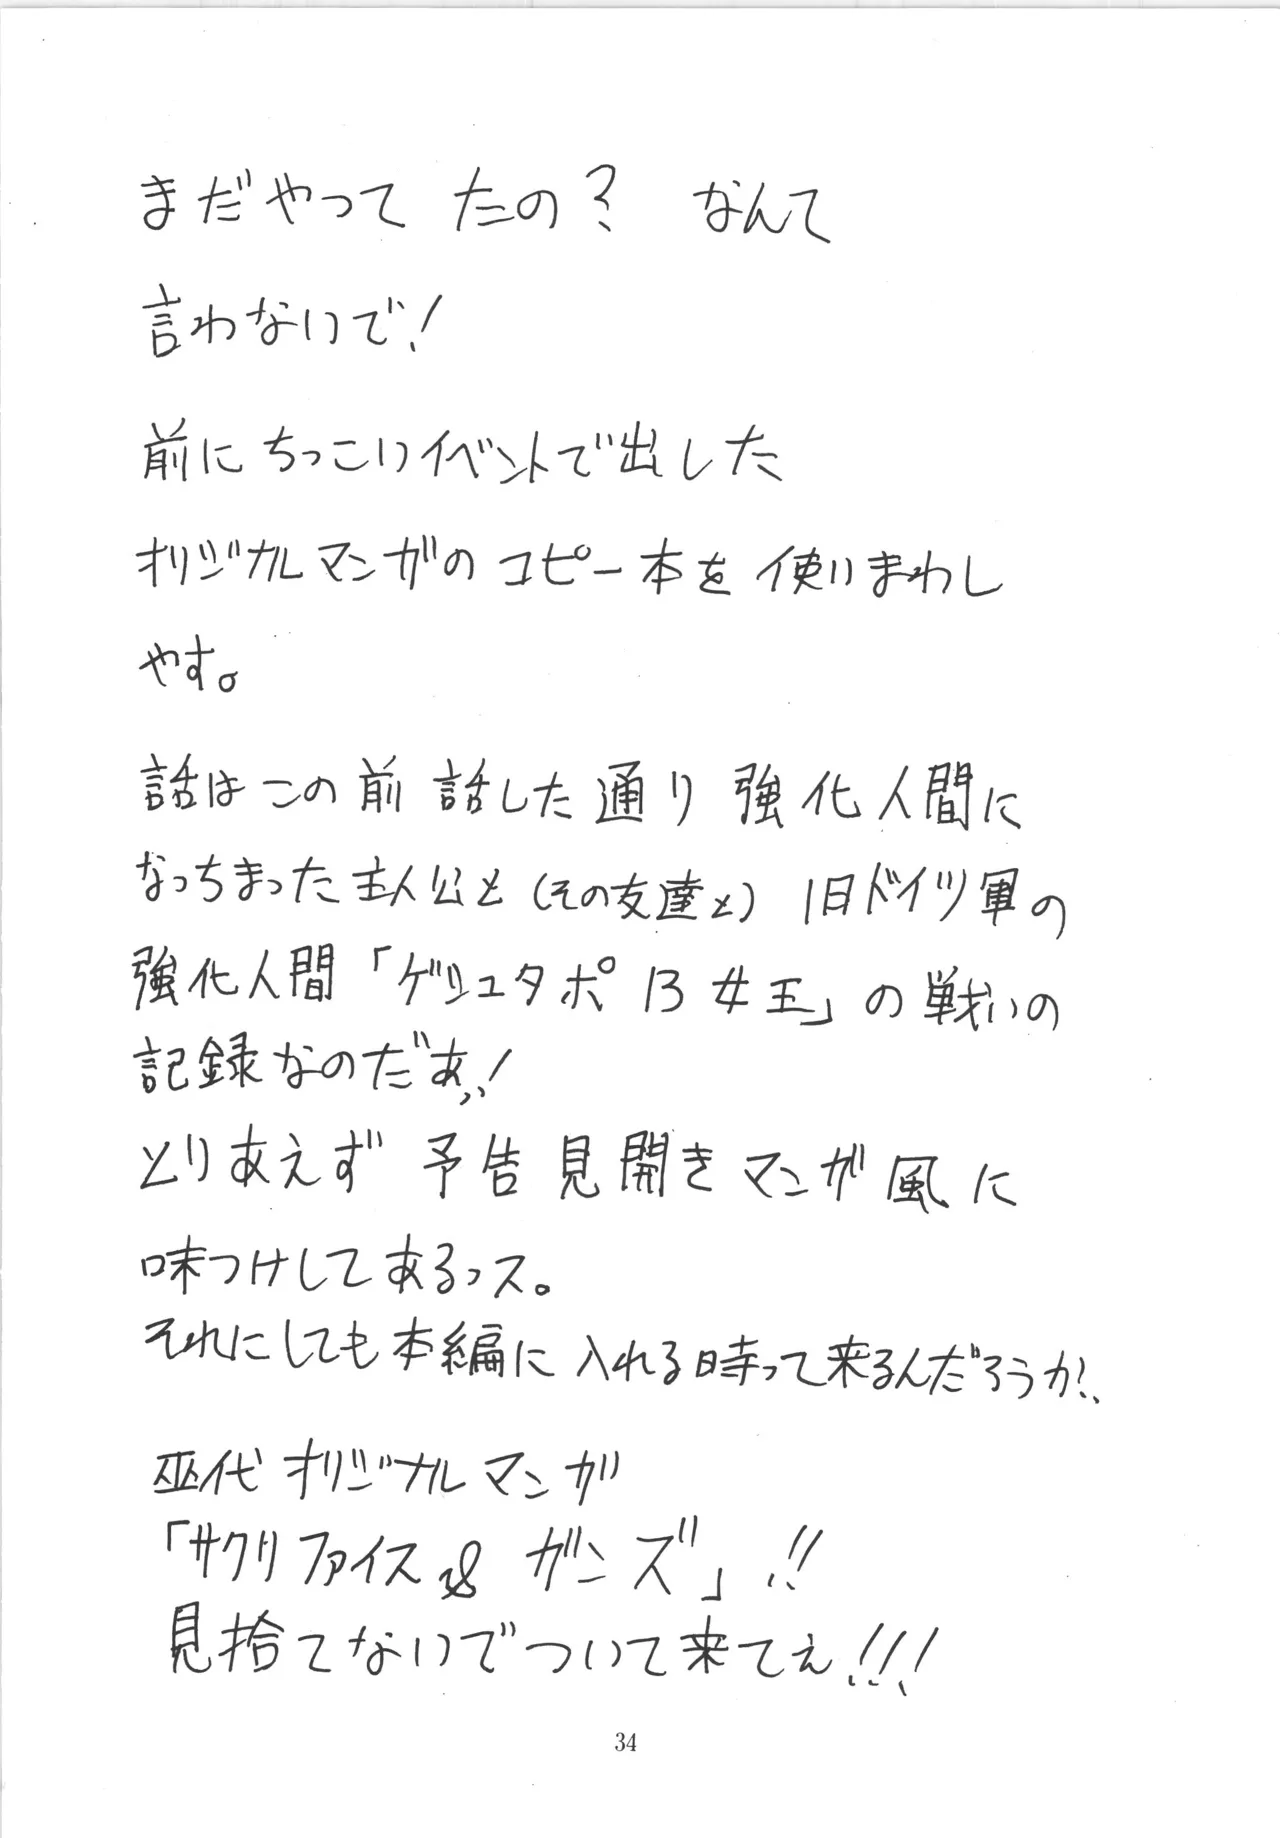 まだやってたの? なんて
言わないで!
前にちっこいイベントで出した
オリジナルマンガのコピー本を使いまわし
やす。
話はこの前話した通り強化人間に
なっちまった主人公と(その友達と)旧ドイツ軍の
強化人間「ゲシュタポ13女王」の戦いの
記録なのだぁ!
とりあえず予告見開きマンガ風に
味つけしてあるっス。
それにしても本編に入れる時って来るんだろうか?
巫代オリジナルマンガ
「サクリファイス&ガンズ」!!
見捨てないでついて来てぇ!!!
34